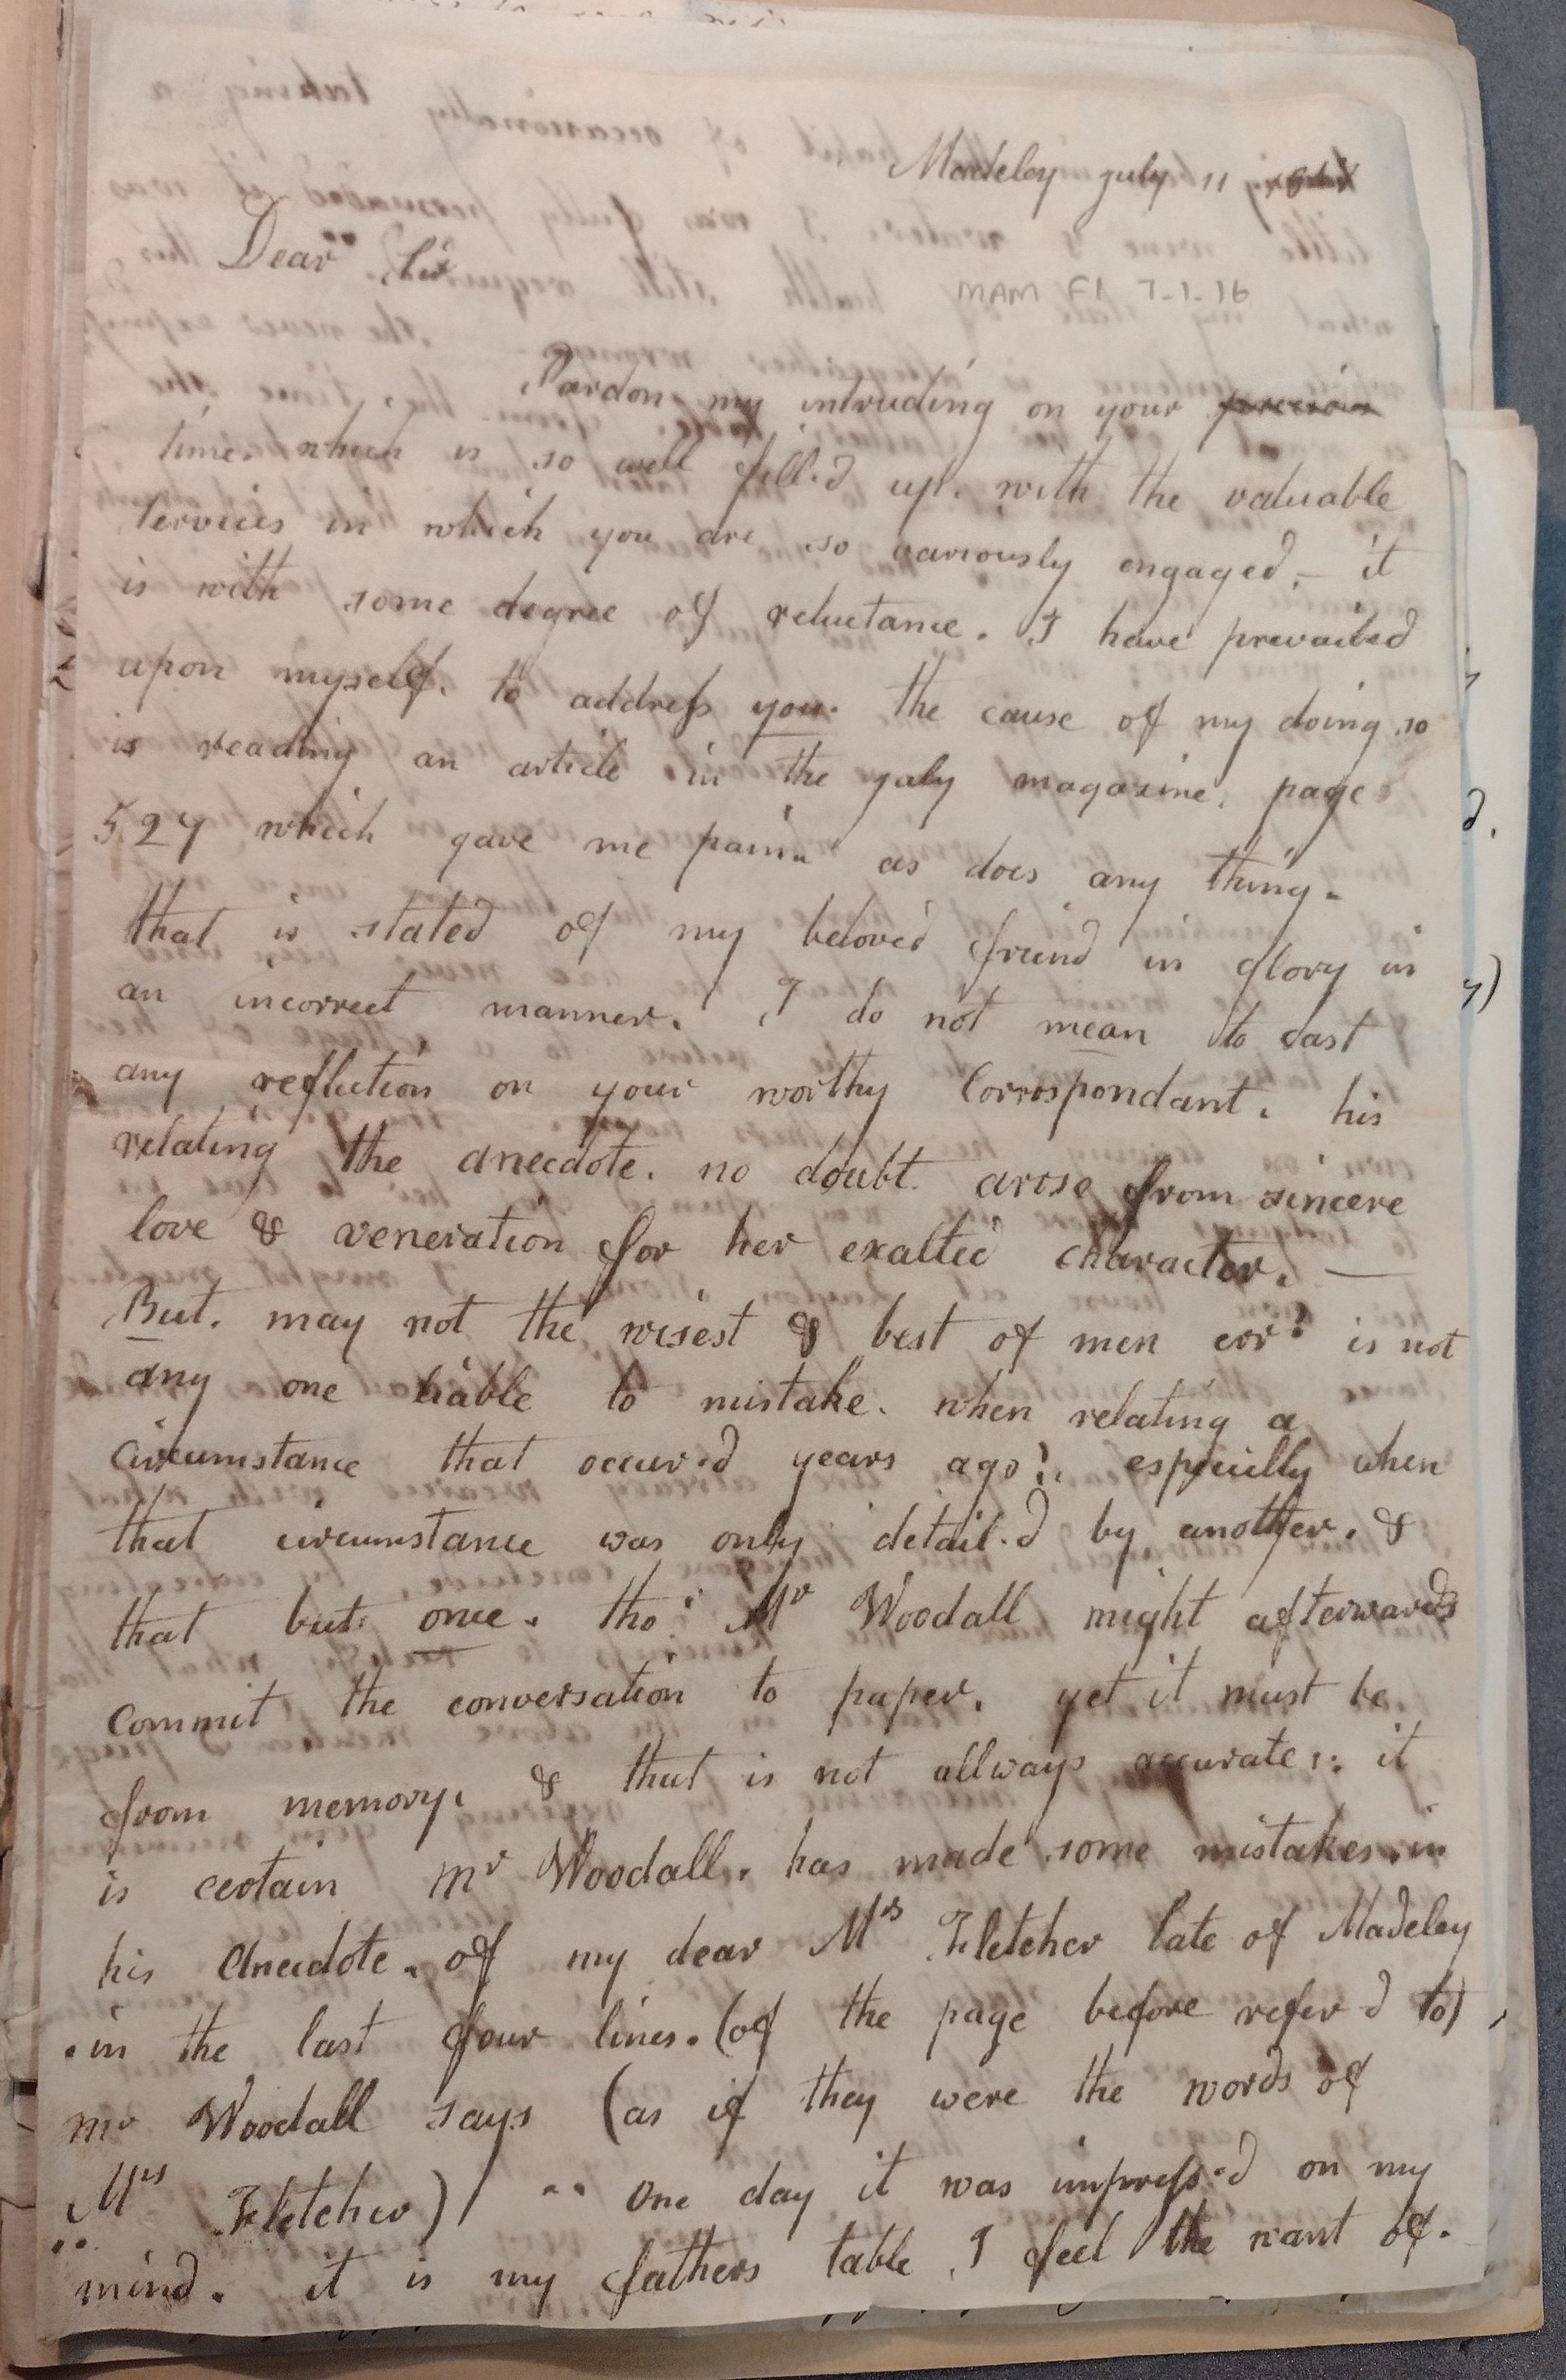 Madeley July 11
Dear Sir
MAM Fl 7.1.16
Pardon my intruding on your precious
time. which is so well fill.d up. with the valuable
services in which you are so variously engaged, – it
is with some degree of reluctance. I have prevailed
upon myself. to address you. the cause of my doing so
is reading an article in the July magazine. page
527 which gave me pain.. as does any thing.
that is stated of my beloved friend in glory in
an incorrect manner. I do not mean to cast
any reflection on your worthy Correspondant. his
relating the anecdote. no doubt. arose from sincere
love & veneration for her exalted character. —
But. may not the wisest & best of men err? is not
any one liable to mistake. when relating a
circumstance that occur.d years ago?. especially when
that circumstance was only detail.d by another. &
that but once. tho' Mr Woodall might afterwards
commit the conversation to paper. yet it must be
from memory. & that is not allways accurate:. it
is certain Mr Woodall. has made some mistakes. in
his Anecdote. of my dear Mrs Fletcher late of Madeley
.in the last four lines. (of the page before refer.d to)
Mr Woodall says (as if they were the words of
Mrs Fletcher) " One day it was impress.d on my
mind. it is my fathers table I feel the want of.